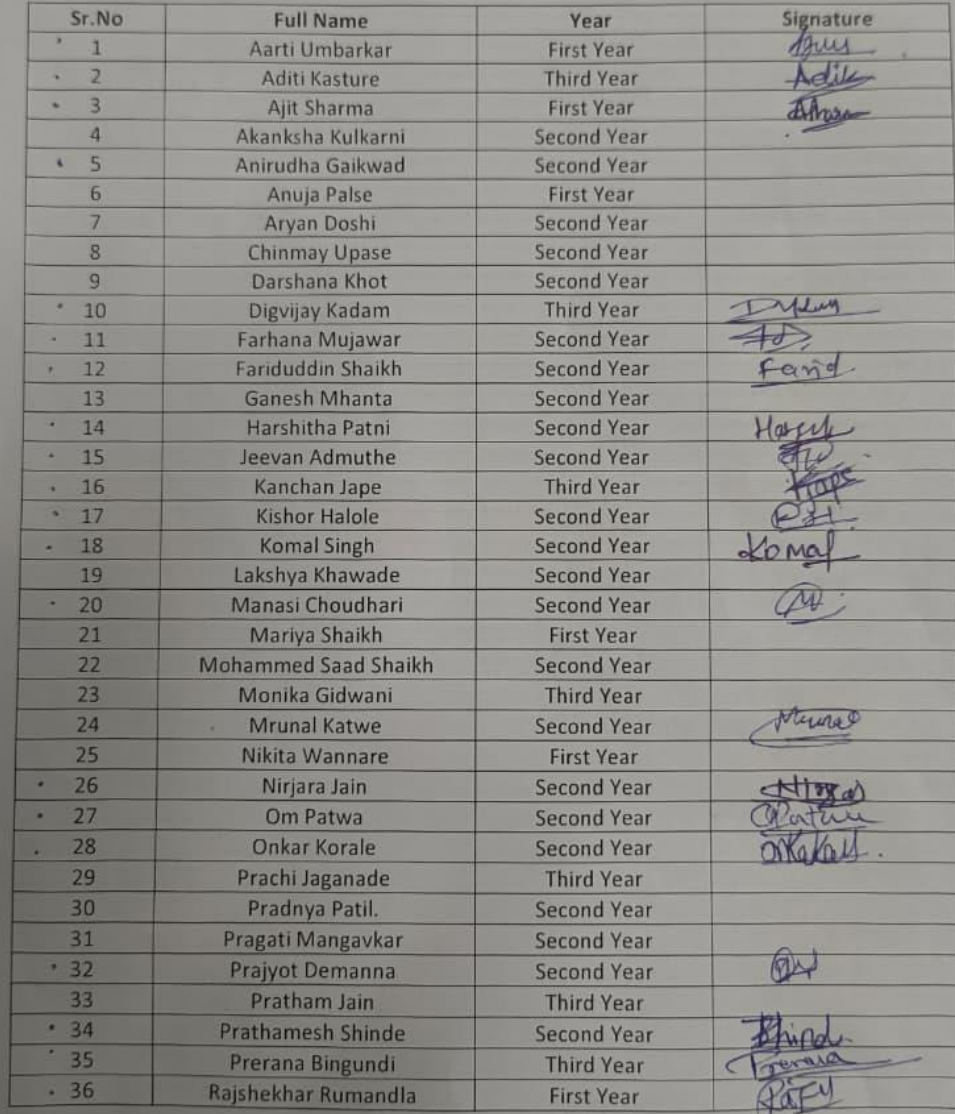 Sr.No Full Name Year Signature
1 Aarti Umbarkar First Year
2 Aditi Kasture Third Year Adik
3 Ajit Sharma First Year
4 Akanksha Kulkarni Second Year
5 Anirudha Gaikwad Second Year
6 Anuja Palse First Year
7 Aryan Doshi Second Year
8 Chinmay Upase Second Year
9 Darshana Khot Second Year
10 Digvijay Kadam Third Year
11 Farhana Mujawar Second Year
12 Fariduddin Shaikh Second Year Farid.
13 Ganesh Mhanta Second Year
14 Harshitha Patni Second Year
15 Jeevan Admuthe Second Year
16 Kanchan Jape Third Year
17 Kishor Halole Second Year
18 Komal Singh Second Year Komal
19 Lakshya Khawade Second Year
20 Manasi Choudhari Second Year
21 Mariya Shaikh First Year
22 Mohammed Saad Shaikh Second Year
23 Monika Gidwani Third Year
24 Mrunal Katwe Second Year Mrunal
25 Nikita Wannare First Year
26 Nirjara Jain Second Year
27 Om Patwa Second Year
28 Onkar Korale Second Year
29 Prachi Jaganade Third Year
30 Pradnya Patil. Second Year
31 Pragati Mangavkar Second Year
32 Prajyot Demanna Second Year
33 Pratham Jain Third Year
34 Prathamesh Shinde Second Year
35 Prerana Bingundi Third Year Prerana
36 Rajshekhar Rumandla First Year